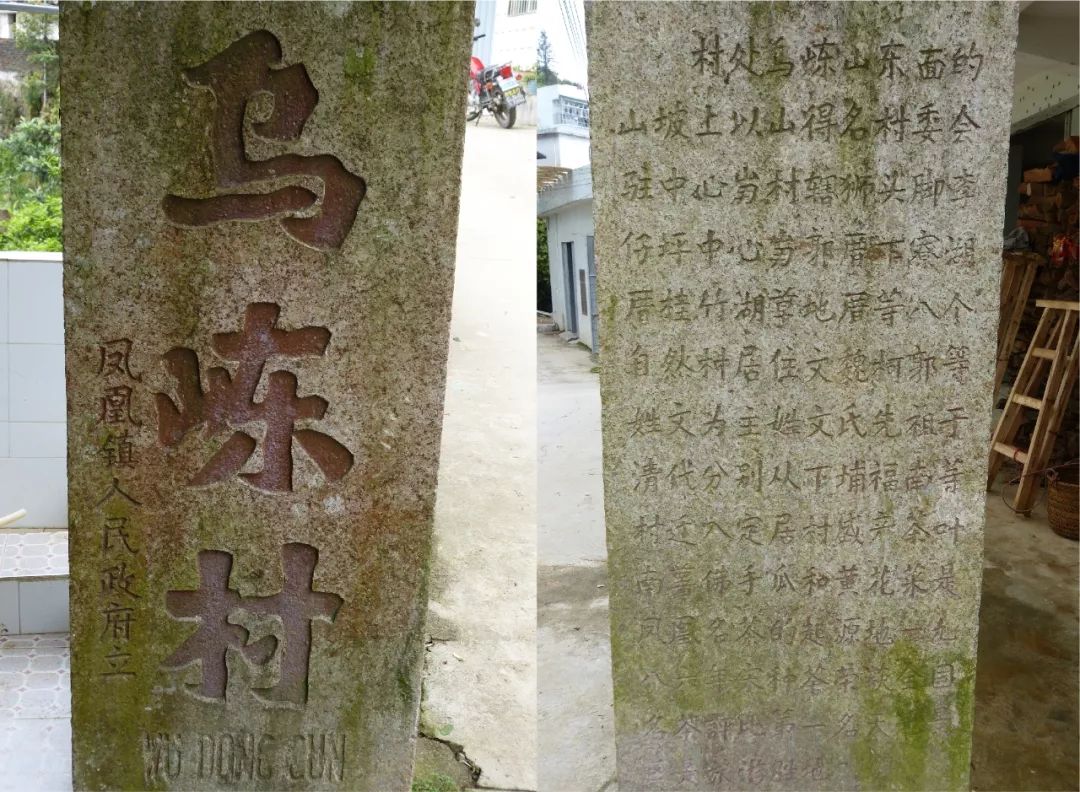 乌岽村
凤凰镇人民政府立
WU DONG CUN
村处乌岽山东面的
山坡上以山得名村委会
驻中心村辖狮头脚
仔坪中心郭厝下寮湖
厝桂竹湖草地厝等八个
自然村居住文魏柯郭等
姓文为主姓文氏先祖于
清代分别从下埔福南等
村迁入定居村盛产茶叶
佛手瓜和黄花菜是
凤凰名茶的起源地一九
八年茶种茶国
名茶评第一名